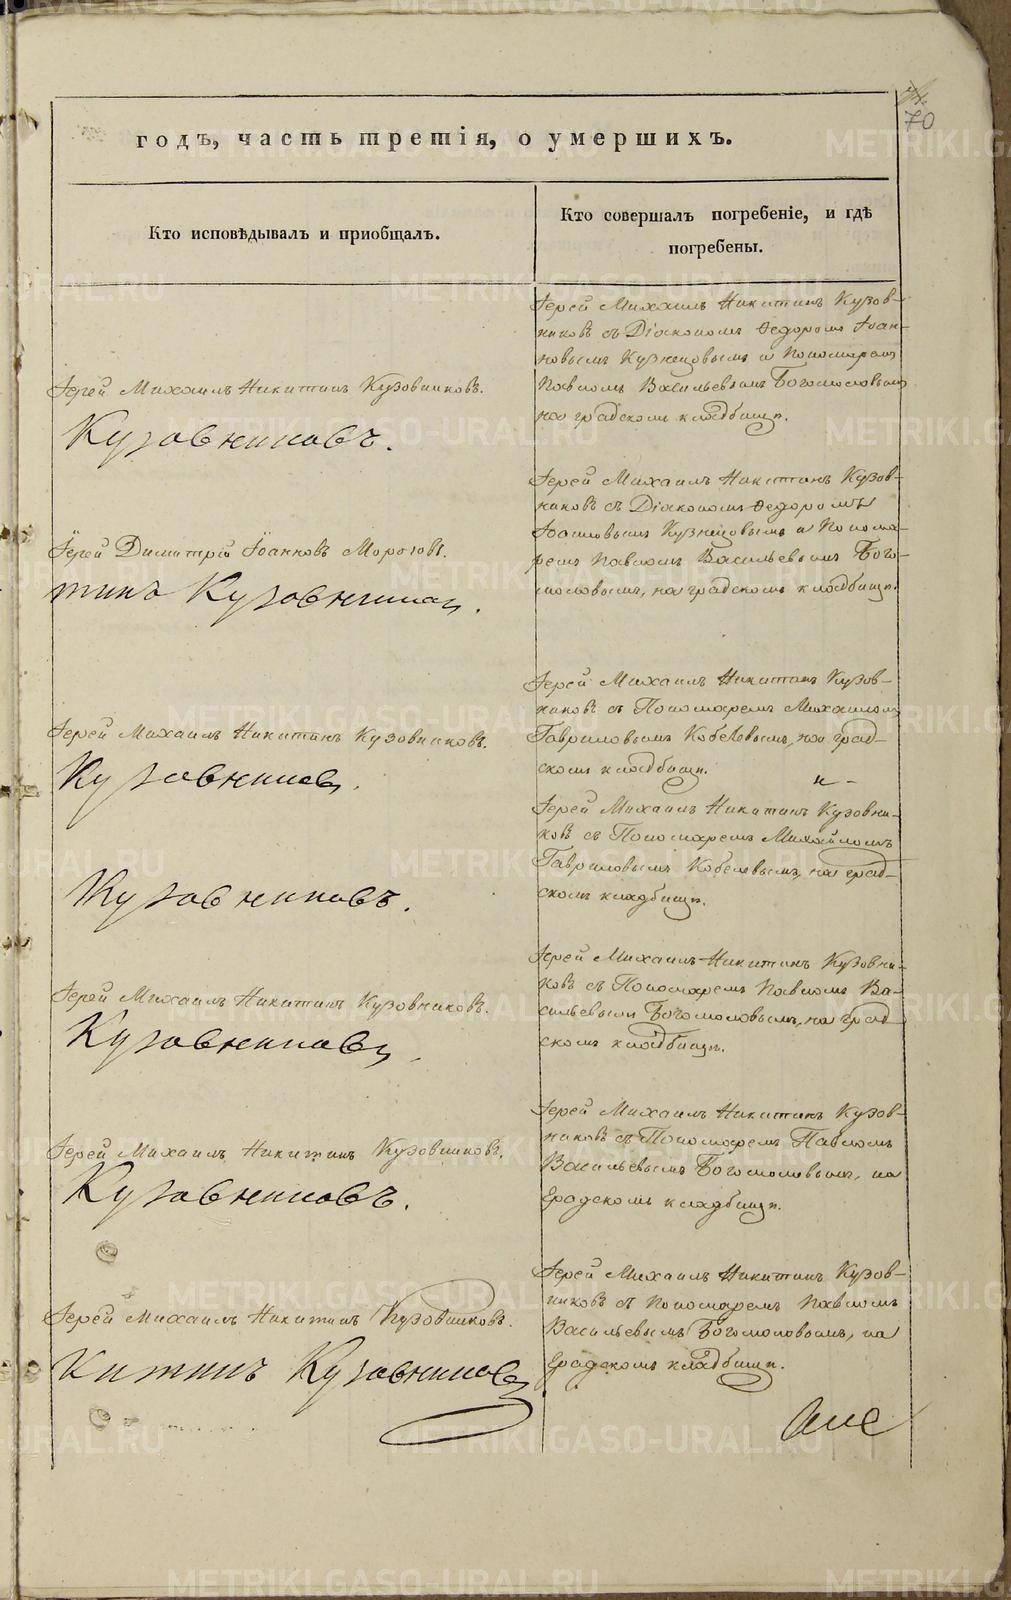 70
годъ, часть третія, о умершихъ.
Кто исповѣдывалъ и пріобщалъ.
Кто совершалъ погребеніе, и гдѣ
погребены.
Іерей Михаилъ Никитинъ Кузовниковъ.
Кузовниковъ.
Іерей Михаилъ Никитинъ Кузов-
никовъ съ Діакономъ Ѳедоромъ Іоан-
новымъ Кузнецовымъ и Пономаремъ
Павломъ Васильевымъ Богомоловымъ
на градскомъ кладбищѣ.
Іерей Димитрій Іоанновъ Морозовъ.
тинъ Кузовников
Іерей Михаилъ Никитинъ Кузов-
никовъ съ Діакономъ Ѳедоромъ
Іоанновымъ Кузнецовымъ и Понома-
ремъ Павломъ Васильевымъ Бого-
моловымъ, на градскомъ кладбищѣ.
Іерей Михаилъ Никитинъ Кузовниковъ.
Кузовниковъ.
Іерей Михаилъ Никитинъ Кузов-
никовъ съ Пономаремъ Михаиломъ
Гавриловымъ Кобелевымъ, на град-
скомъ кладбищѣ.
Кузовниковъ.
Іерей Михаилъ Никитинъ Кузовни-
ковъ съ Пономаремъ Михайломъ
Гавриловымъ Кобелевымъ, на град-
скомъ кладбищѣ.
Іерей Михаилъ Никитинъ Кузовниковъ.
Кузовниковъ
Іерей Михаилъ Никитинъ Кузовни-
ковъ съ Пономаремъ Павломъ Ва-
сильевымъ Богомоловымъ, на град-
скомъ кладбищѣ.
Іерей Михаилъ Никитинъ Кузовниковъ.
Кузовниковъ.
Іерей Михаилъ Никитинъ Кузов-
никовъ съ Пономаремъ Павломъ
Васильевымъ Богомоловымъ, на
Градскомъ кладбищѣ.
Іерей Михаилъ Никитинъ Кузовниковъ.
Китинъ Кузовниковъ
Іерей Михаилъ Никитинъ Кузов-
никовъ съ Пономаремъ Павломъ
Васильевымъ Богомоловымъ, на
Градскомъ кладбищѣ.
METRIKI.GASO-URAL.RU